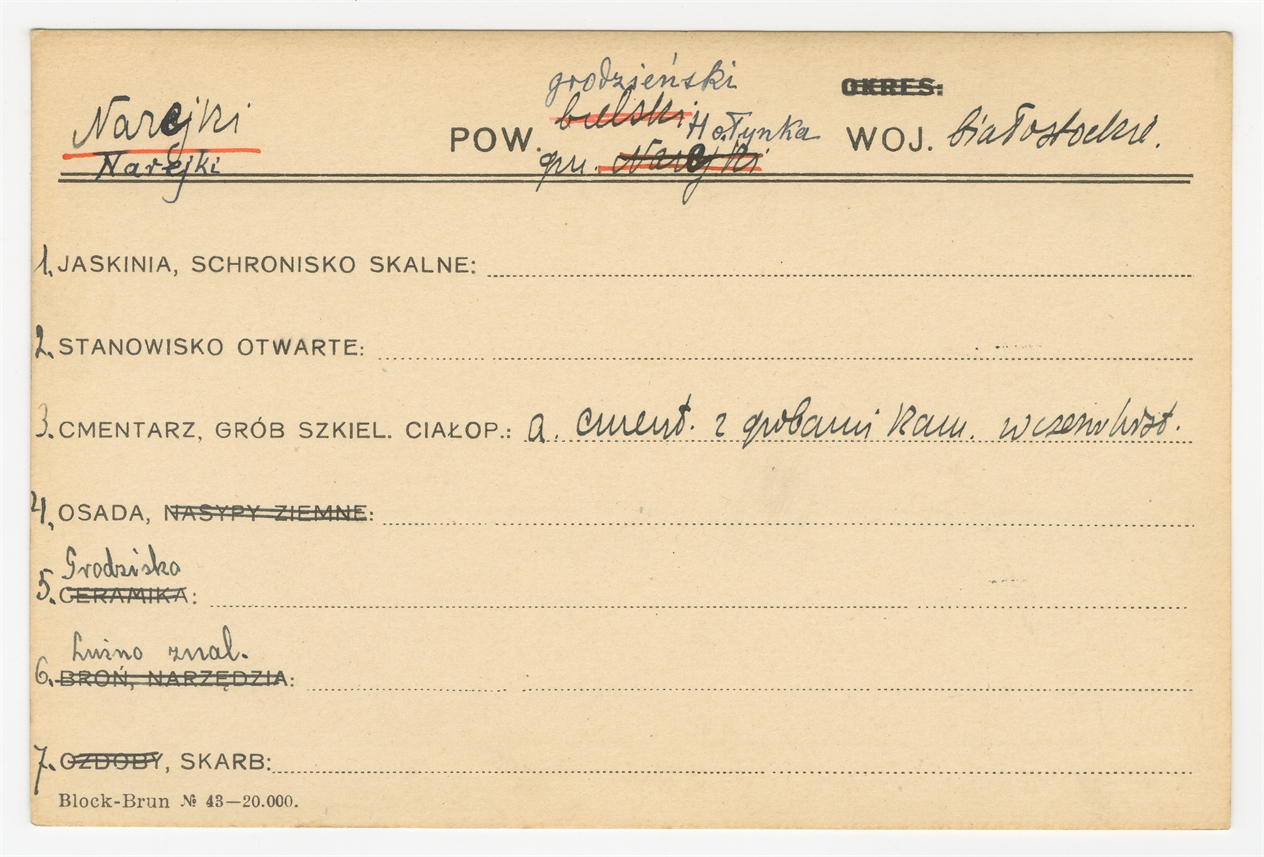 grodzieński
OKRES:
Narejki POW. bielski Hołynka WOJ. białostockie.
Narejki gm. Narejki
1. JASKINIA, SCHRONISKO SKALNE:
2. STANOWISKO OTWARTE:
3. CMENTARZ, GRÓB SZKIEL. CIAŁOP.: a. cment. z grobami kam. wczesnohist.
4. OSADA, NASYPY ZIEMNE:
Grodzisko
5. CERAMIKA:
Luźno znal.
6. BROŃ, NARZĘDZIA:
7. OZDOBY, SKARB:
Block-Brun № 43—20.000.